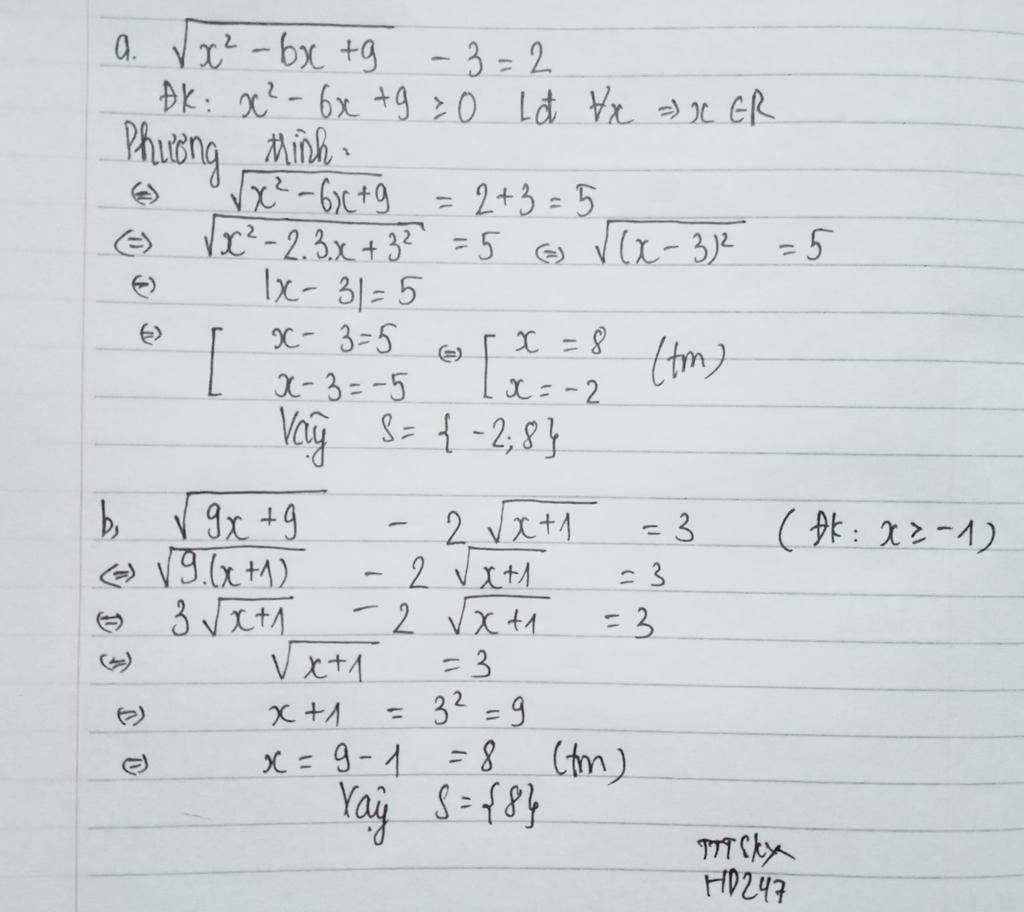 a. √(x² - 6x + 9) - 3 = 2
ĐK: x² - 6x + 9 ≥ 0 Lđ ∀x ⇒ x ∈ R
Phương trình.
⇔ √(x² - 6x + 9) = 2 + 3 = 5
⇔ √(x² - 2.3.x + 3²) = 5 ⇔ √((x - 3)²) = 5
⇔ |x - 3| = 5
⇔ [ x - 3 = 5 ⇔ [ x = 8 (tm)
x - 3 = -5 x = -2
Vậy S = { -2; 8 }
b, √(9x + 9) - 2 √(x + 1) = 3 (ĐK: x ≥ -1)
⇔ √(9.(x + 1)) - 2 √(x + 1) = 3
⇔ 3 √(x + 1) - 2 √(x + 1) = 3
⇔ √(x + 1) = 3
⇔ x + 1 = 3² = 9
⇔ x = 9 - 1 = 8 (tm)
Vậy S = {8}
HD247